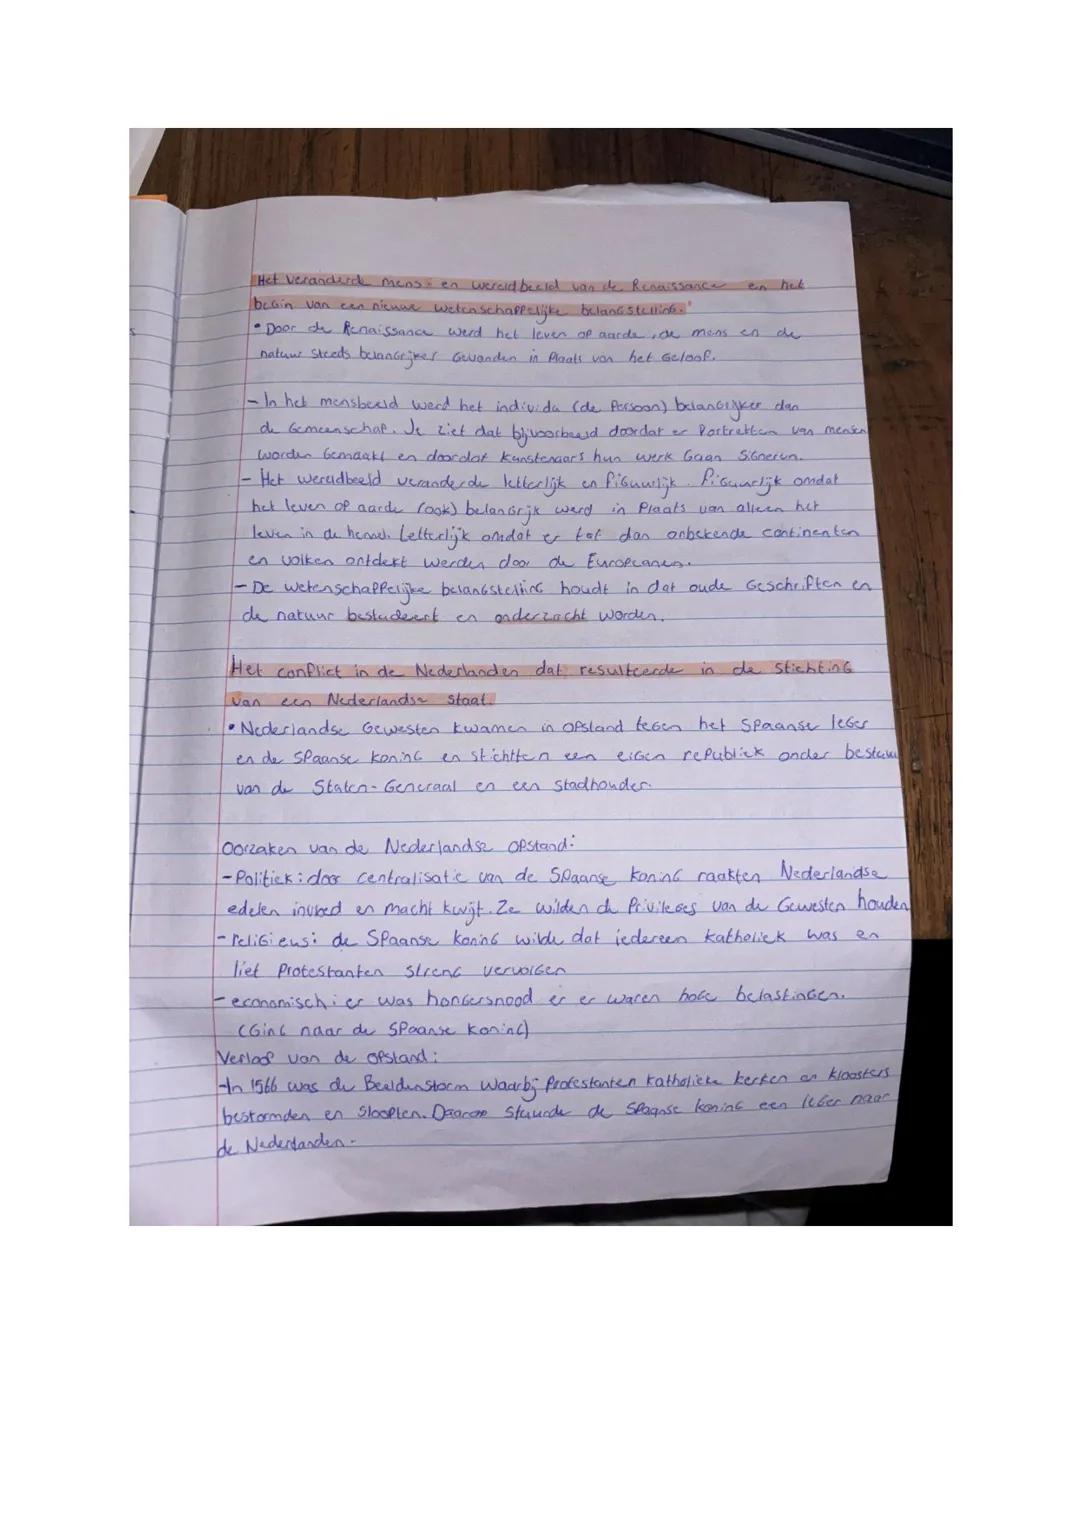 Het veranderde mens- en wereldbeeld van de Renaissance en het
begin van een nieuwe wetenschappelijke belangstelling.
• Door de Renaissance werd het leven op aarde, de mens en de
natuur steeds belangrijker gevonden in plaats van het geloof.
- In het mensbeeld werd het individu (de persoon) belangrijker dan
de gemeenschap. Je ziet dat bijvoorbeeld doordat er portretten van mensen
worden gemaakt en doordat kunstenaars hun werk gaan signeren.
- Het wereldbeeld veranderde letterlijk en figuurlijk. Figuurlijk omdat
het leven op aarde (ook) belangrijk werd in plaats van alleen het
leven in de hemel. Letterlijk omdat er tot dan onbekende continenten
en volken ontdekt werden door de Europeanen.
- De wetenschappelijke belangstelling houdt in dat oude geschriften en
de natuur bestudeert en onderzocht worden.
Het conflict in de Nederlanden dat resulteerde in de stichting
van een Nederlandse staat.
• Nederlandse Gewesten kwamen in opstand tegen het Spaanse leger
en de Spaanse koning en stichtten een eigen republiek onder bestuur
van de Staten-Generaal en een stadhouder.
Oorzaken van de Nederlandse opstand:
- Politiek: door centralisatie van de Spaanse koning raakten Nederlandse
edelen invloed en macht kwijt. Ze wilden de privileges van de Gewesten houden
- religieus: de Spaanse koning wilde dat iedereen katholiek was en
liet Protestanten streng vervolgen
- economisch: er was hongersnood er er waren hoge belastingen.
(Ging naar de Spaanse koning)
Verloop van de opstand:
- In 1566 was de Beeldenstorm waarbij Protestanten katholieke kerken en kloosters
bestormden en sloopten. Daarom stuurde de Spaanse koning een leger naar
de Nederlanden.